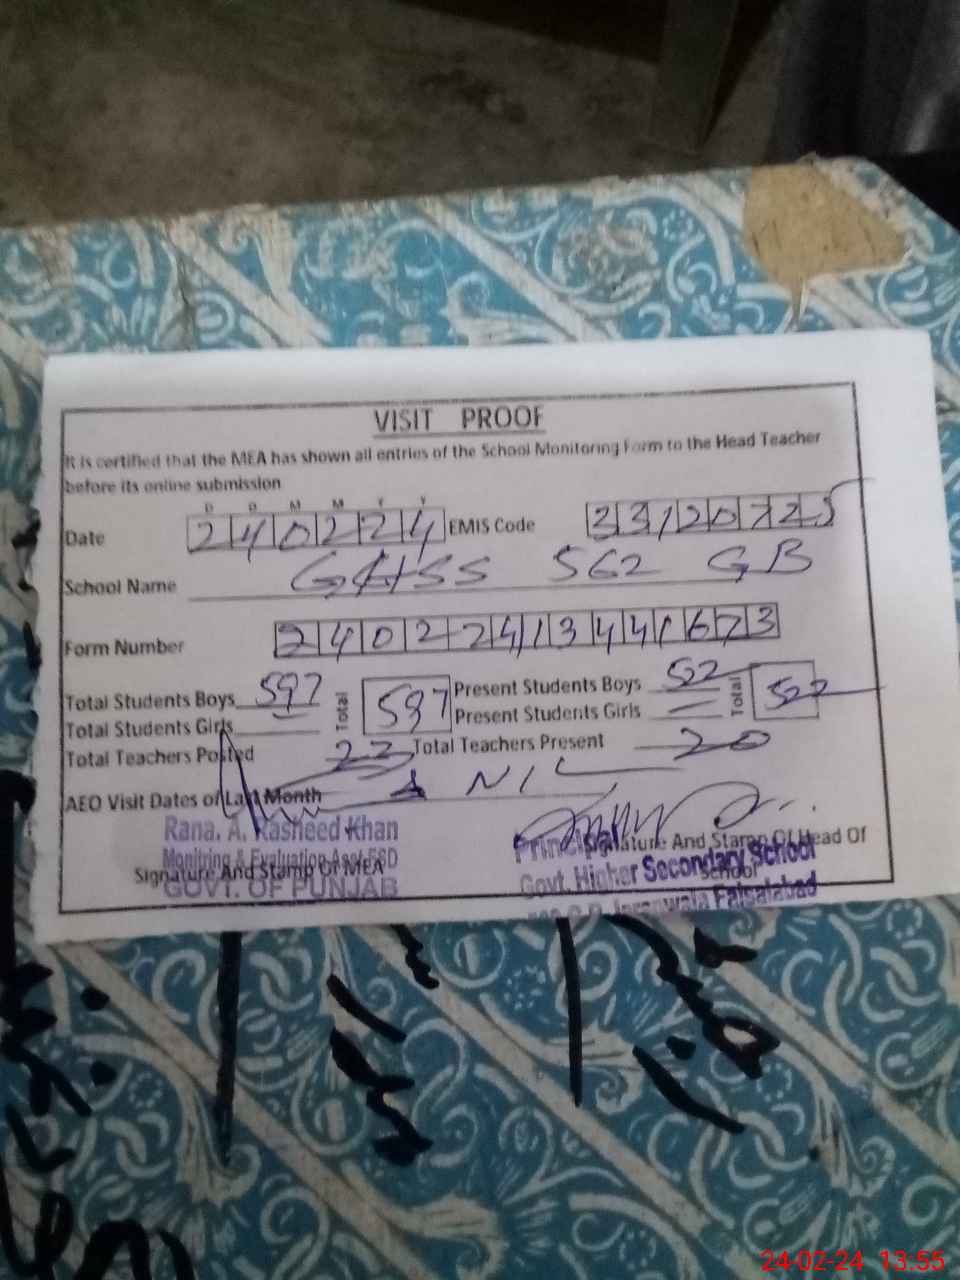 VISIT PROOF
It is certified that the MEA has shown all entries of the School Monitoring Form to the Head Teacher
before its online submission
D D M M Y Y
Date 240224 EMIS Code 33120725
School Name GHSS 562 GB
Form Number 24022413441673
Total Students Boys 597 Total 597 Present Students Boys 522 Total 522
Total Students Girls Present Students Girls —
Total Teachers Posted 22 Total Teachers Present 20
AEO Visit Dates of Last Month NIL
Rana. A. Rasheed Khan
Signature And Stamp Of MEA
GOVT. OF PUNJAB
Signature And Stamp Of Head Of
School
Principal
Govt. Higher Secondary School
Jaranwala Faisalabad
24-02-24 13:55